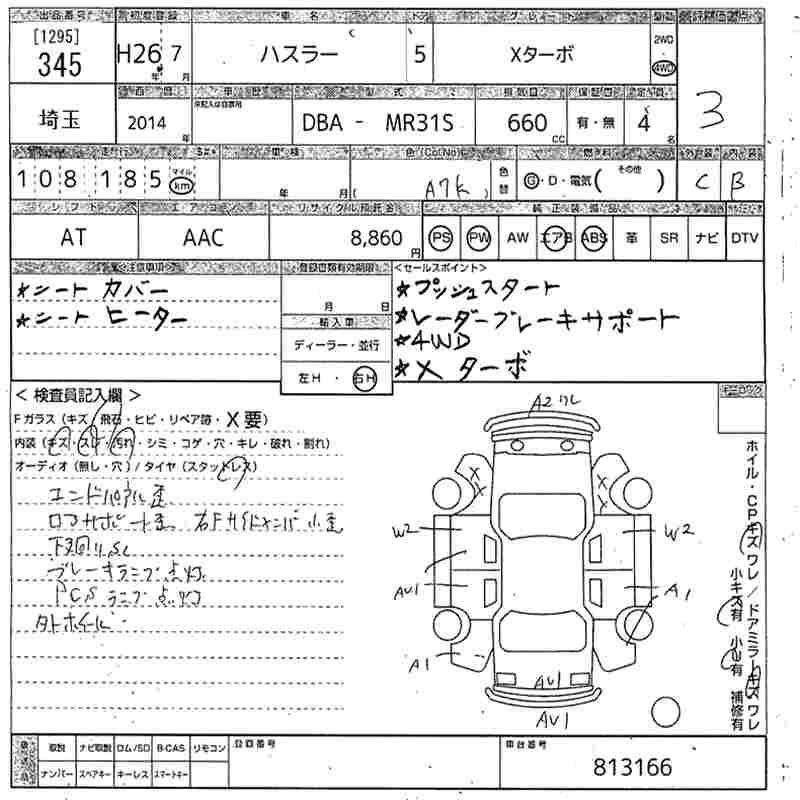 出品番号 初度登録 車名 ドア グレード 駆動 評価点
[1295]
345
H26 年 7 月
ハスラー
5
Xターボ
2WD
4WD
3
埼玉
西暦 車歴 型式 排気量 保証書 定員
2014 年
※記入は自家用
DBA - MR31S
660 cc
有・無
4 名
走行 車検 色(Col.No) 燃料 外装 内装
108185 マイル km
年 月
( A7K )
色替
G・D・電気( その他 )
C B
シフト エアコン リサイクル預託金 純正装備品
AT
AAC
8,860 円
PS PW AW エアB ABS 革 SR ナビ DTV
注意事項
★シート カバー
★シート ヒーター
登録書類有効期限
月 日
輸入車
ディーラー・並行
左H・右H
<セールスポイント>
★プッシュスタート
★レーダーブレーキサポート
★4WD
★X ターボ
<検査員記入欄>
Fガラス(キズ・飛石・ヒビ・リペア跡・X要)
内装(キズ・スレ・汚れ・シミ・コゲ・穴・キレ・破れ・割れ)
オーディオ(無し・穴)/タイヤ(スタッドレス)
エンドパネル歪
コアサポート歪 右Fサイドメンバ小歪
下回りSC
ブレーキランプ点灯
PCSランプ点灯
外ホイール
A2ワレ
X X X X
W2 W2
AU1 A1
A1
AU1
AU1
ホイル・CPキズワレ/ドアミラーキズワレ
小キズ有 小凹有 補修有
取説 ナビ取説 ロム/SD B-CAS リモコン
ナンバー スペアキー キーレス スマートキー
登録番号
車台番号
813166